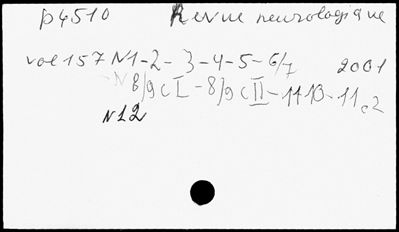 p4510 Revue neurologique
vol 157 N1-2-3-4-5-6/7 2001
-N8/9cI-8/9cII-1110-11c2
N12